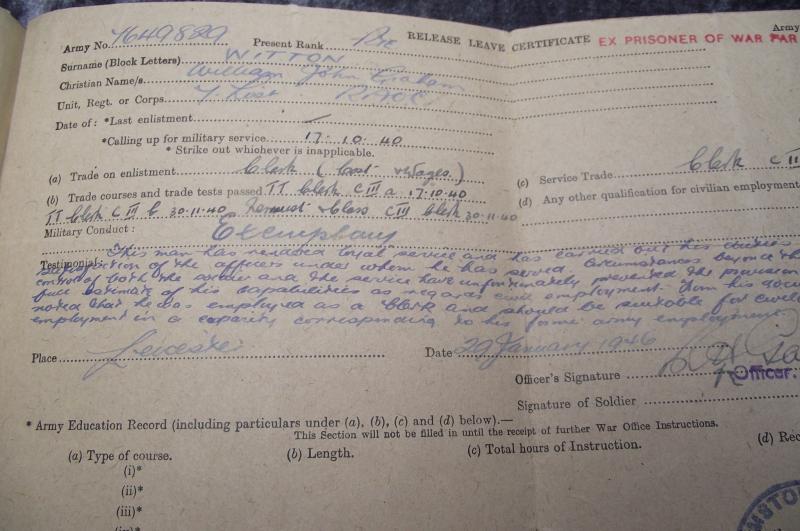 Army
RELEASE LEAVE CERTIFICATE EX PRISONER OF WAR
Army No. 7649829 Present Rank Pte
Surname (Block Letters) WITTON
Christian Name/s William John Graham
Unit, Regt. or Corps
Date of: *Last enlistment
*Calling up for military service 17-10-40
* Strike out whichever is inapplicable.
(a) Trade on enlistment Clerk (Cost & Wages)
(c) Service Trade Clerk C III
(b) Trade courses and trade tests passed TT Clerk C III a 17-10-40
(d) Any other qualification for civilian employment
TT Clerk C III b 30-11-40 Remust & Class C III Clerk 30-11-40
Military Conduct: Exemplary
Testimonial: This man has rendered loyal service and has carried out his duties
satisfaction of the officers under whom he has served. Circumstances beyond the
control of both the soldier and the service have unfortunately prevented the provision
full estimate of his capabilities as regards civil employment. From his
noted that he was employed as a Clerk and should be suitable for
employment in a capacity corresponding to his former army employment.
Place Leicester Date 29 January 1946
Officer's Signature
Officer.
Signature of Soldier
* Army Education Record (including particulars under (a), (b), (c) and (d) below).—
This Section will not be filled in until the receipt of further War Office Instructions.
(a) Type of course. (b) Length. (c) Total hours of Instruction. (d)
(i)*
(ii)*
(iii)*